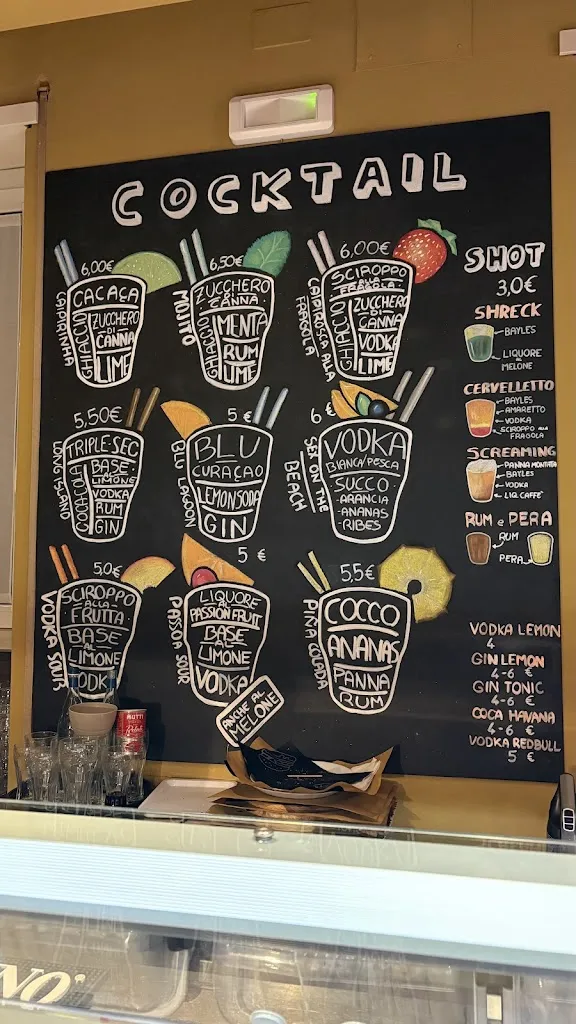 COCKTAIL
6,00€
CAIPIRINHA
CACAÇA
GHIACCIO
ZUCCHERO
DI
CANNA
LIME
6,50€
MOJITO
ZUCCHERO
DI
CANNA
GHIACCIO
MENTA
RUM
LIME
6,00€
CAIPIROSCA ALLA
FRAGOLA
SCIROPPO
ALLA
FRAGOLA
GHIACCIO
ZUCCHERO
DI
CANNA
VODKA
LIME
5,50€
LONG ISLAND
TRIPLE-SEC
COCA-COLA
BASE
AL
LIMONE
VODKA
RUM
GIN
5 €
BLU LAGOON
BLU
CURAÇAO
LEMONSODA
GIN
6 €
SEX ON THE
BEACH
VODKA
BIANCA/PESCA
SUCCO
-ARANCIA
-ANANAS
-RIBES
5,0€
VODKA SOUR
SCIROPPO
ALLA
FRUTTA
BASE
AL
LIMONE
VODKA
5 €
PASSOA SOUR
LIQUORE
AL
PASSION FRUIT
BASE
AL
LIMONE
VODKA
ANCHE AL
MELONE
5,5€
PIÑA COLADA
COCCO
ANANAS
PANNA
RUM
SHOT
3,0€
SHRECK
BAYLES
LIQUORE
AL
MELONE
CERVELLETTO
BAYLES
AMARETTO
VODKA
SCIROPPO ALLA
FRAGOLA
SCREAMING
PANNA MONTATA
BAYLES
VODKA
LIQ. CAFFE'
RUM e PERA
RUM
PERA
VODKA LEMON
4
GIN LEMON
4-6 €
GIN TONIC
4-6 €
COCA HAVANA
4-6 €
VODKA REDBULL
5 €
MUTTI
NO